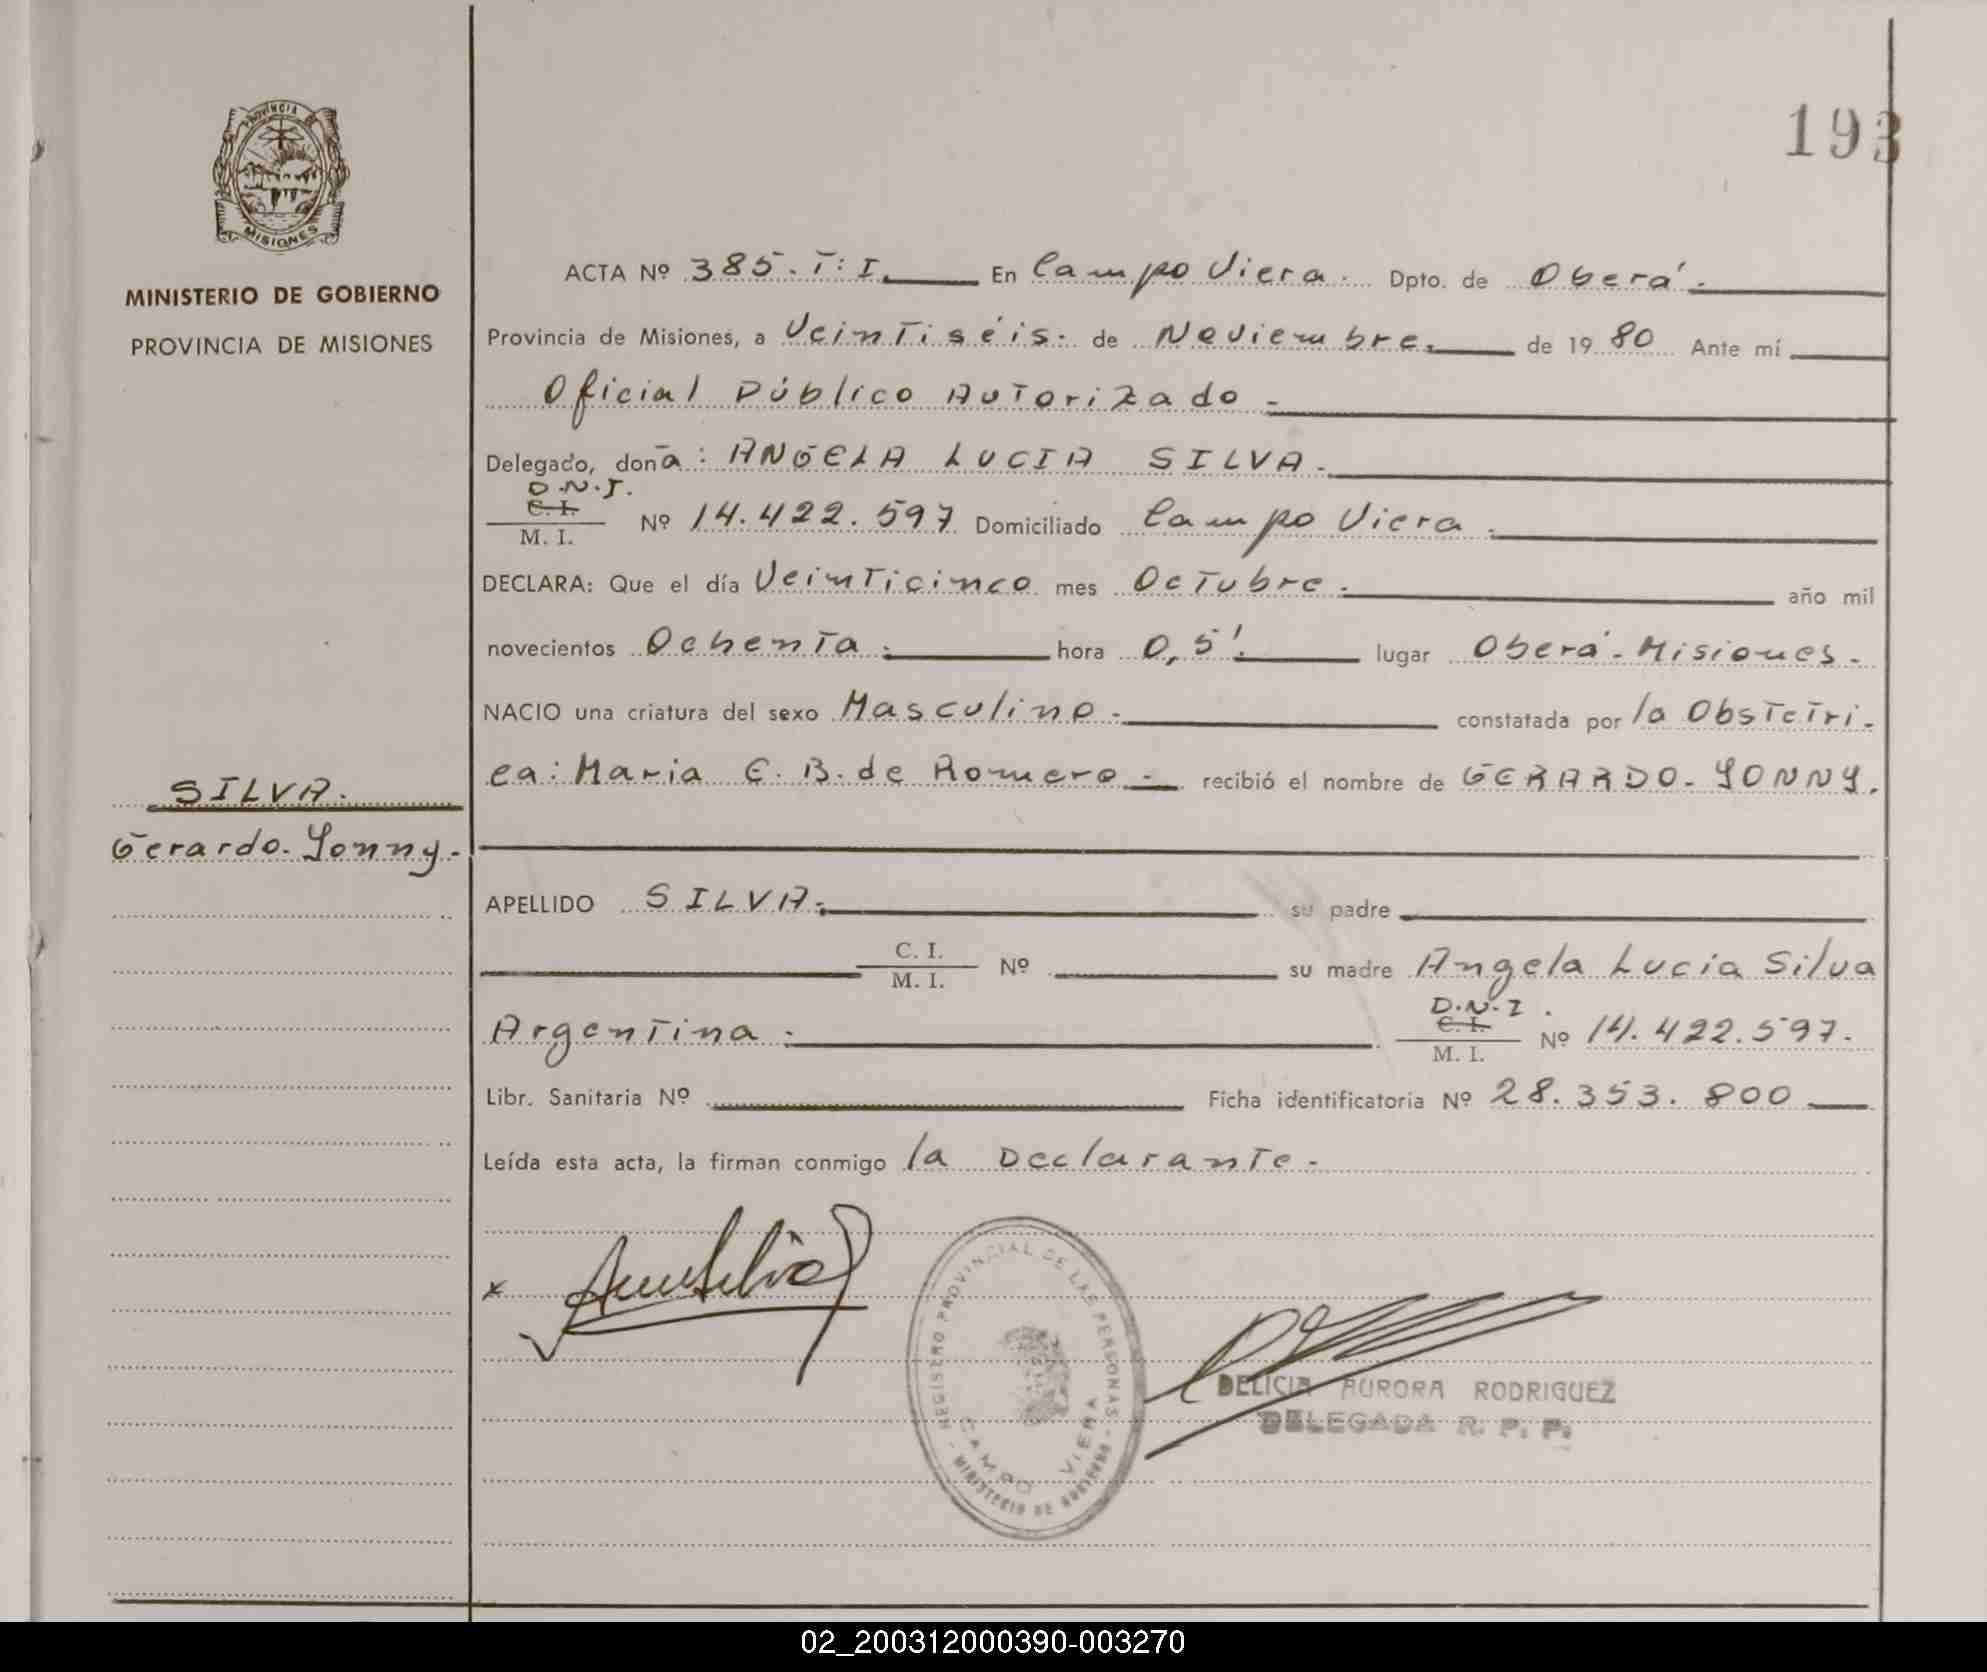 193
PROVINCIA DE
MISIONES
MINISTERIO DE GOBIERNO
PROVINCIA DE MISIONES
ACTA Nº 385. T: I. En Campo Viera. Dpto. de Oberá.
Provincia de Misiones, a Veintiséis. de Noviembre. de 19 80 Ante mí
Oficial Público Autorizado -
Delegado, doña: ANGELA LUCIA SILVA.
D.N.I.
C. I.
M. I. Nº 14.422.597 Domiciliado Campo Viera.
DECLARA: Que el día Veinticinco mes Octubre. año mil
novecientos Ochenta. hora 0,5'. lugar Oberá - Misiones.-
NACIO una criatura del sexo Masculino.- constatada por la Obstetri-
ca: Maria C. B. de Romero.- recibió el nombre de GERARDO - YONNY.
SILVA.
Gerardo - Yonny.-
APELLIDO SILVA. su padre
C. I.
M. I. Nº su madre Angela Lucia Silva
Argentina.
D.N.I.
C. I.
M. I. Nº 14.422.597.
Libr. Sanitaria Nº Ficha identificatoria Nº 28.353.800
Leída esta acta, la firman conmigo la Declarante.-
x
REGISTRO PROVINCIAL DE LAS PERSONAS - MINISTERIO DE GOBIERNO -
CAMPO VIERA
DELICIA AURORA RODRIGUEZ
DELEGADA R. P. P.
02_200312000390-003270